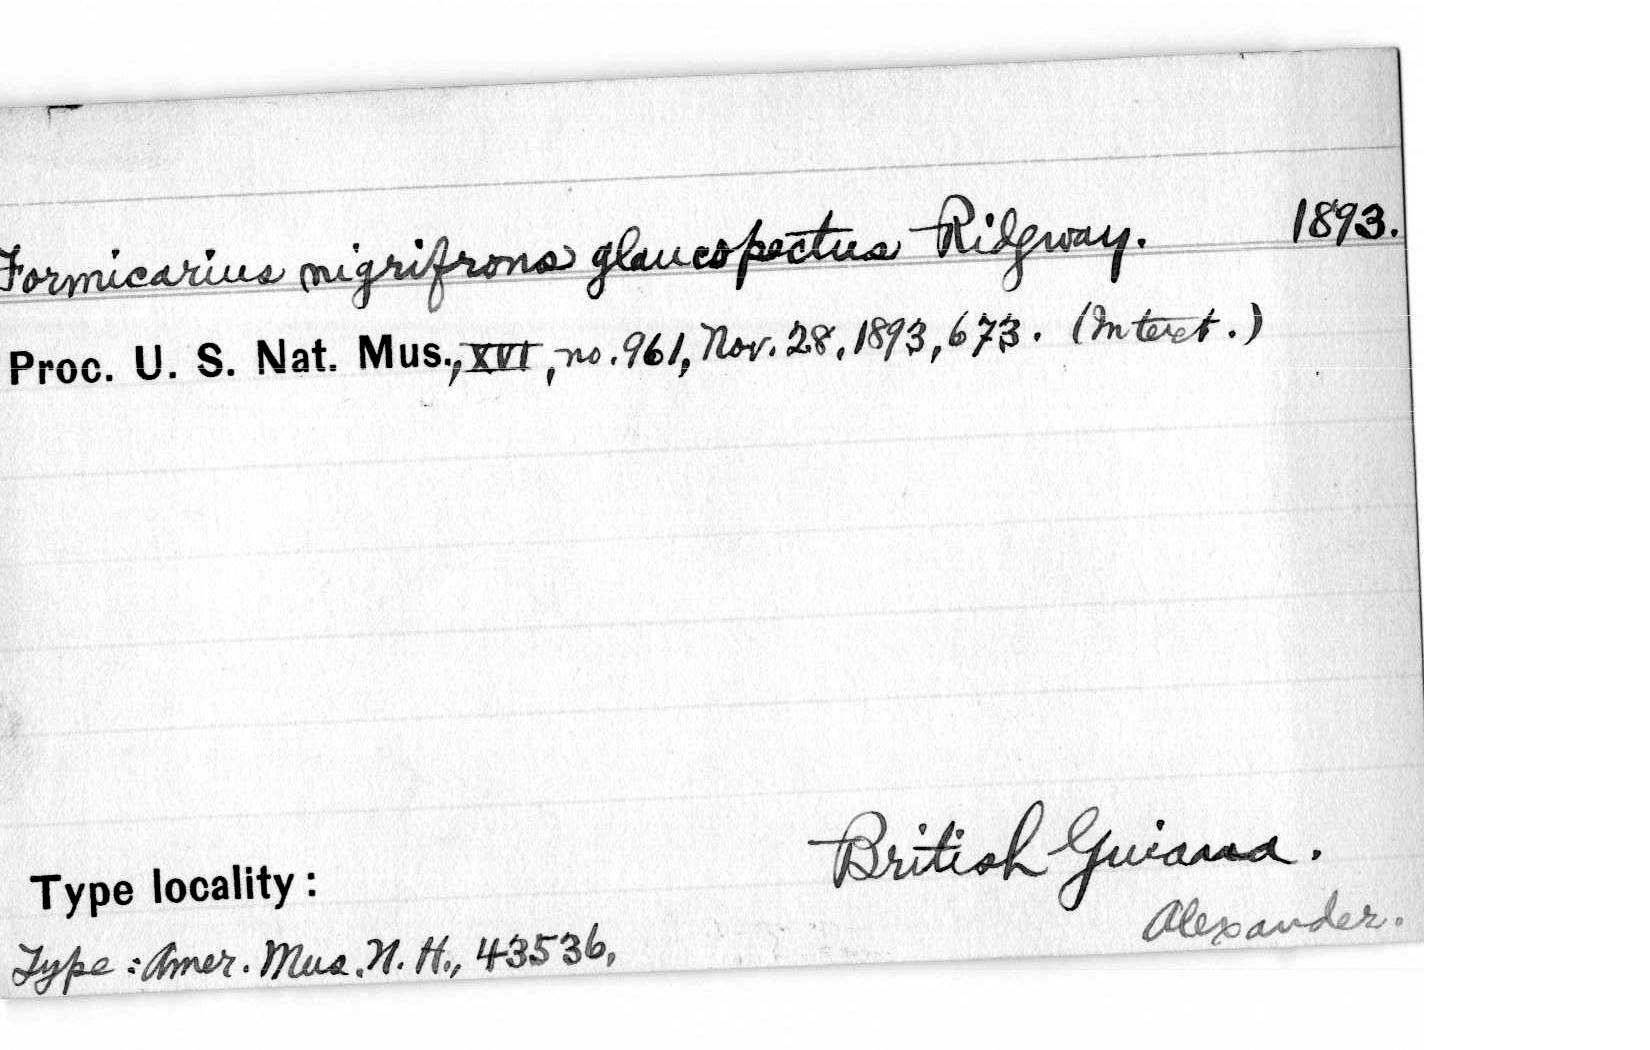 Formicarius nigrifrons glaucopectus Ridgway. 1893.
Proc. U. S. Nat. Mus., XVI, no. 961, Nov. 28, 1893, 673. (In text.)
British Guiana.
Type locality:
Alexander.
Type: Amer. Mus. N. H., 43536,